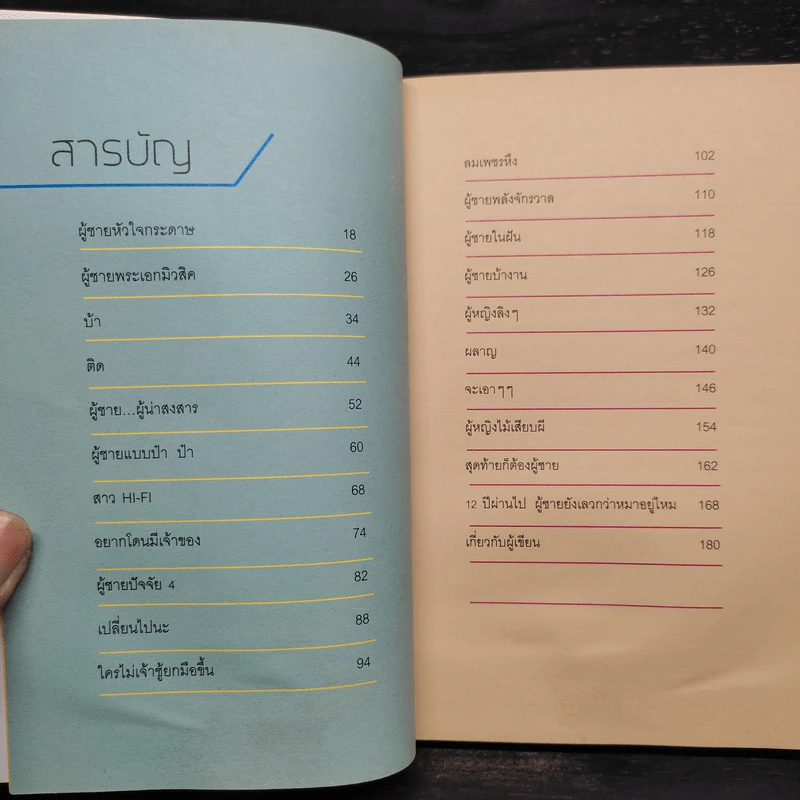 สารบัญ
ผู้ชายหัวใจกระดาษ 18
ผู้ชายพระเอกมิวสิค 26
บ้า 34
ติด 44
ผู้ชาย...ผู้น่าสงสาร 52
ผู้ชายแบบป๋า ป๋า 60
สาว HI-FI 68
อยากโดนมีเจ้าของ 74
ผู้ชายปัจจัย 4 82
เปลี่ยนไปนะ 88
ใครไม่เจ้าชู้ยกมือขึ้น 94
ลมเพชรหึง 102
ผู้ชายพลังจักรวาล 110
ผู้ชายในฝัน 118
ผู้ชายบ้างาน 126
ผู้หญิงลิงๆ 132
ผลาญ 140
จะเอาๆๆ 146
ผู้หญิงไม้เสียบผี 154
สุดท้ายก็ต้องผู้ชาย 162
12 ปีผ่านไป ผู้ชายยังเลวกว่าหมาอยู่ไหม 168
เกี่ยวกับผู้เขียน 180